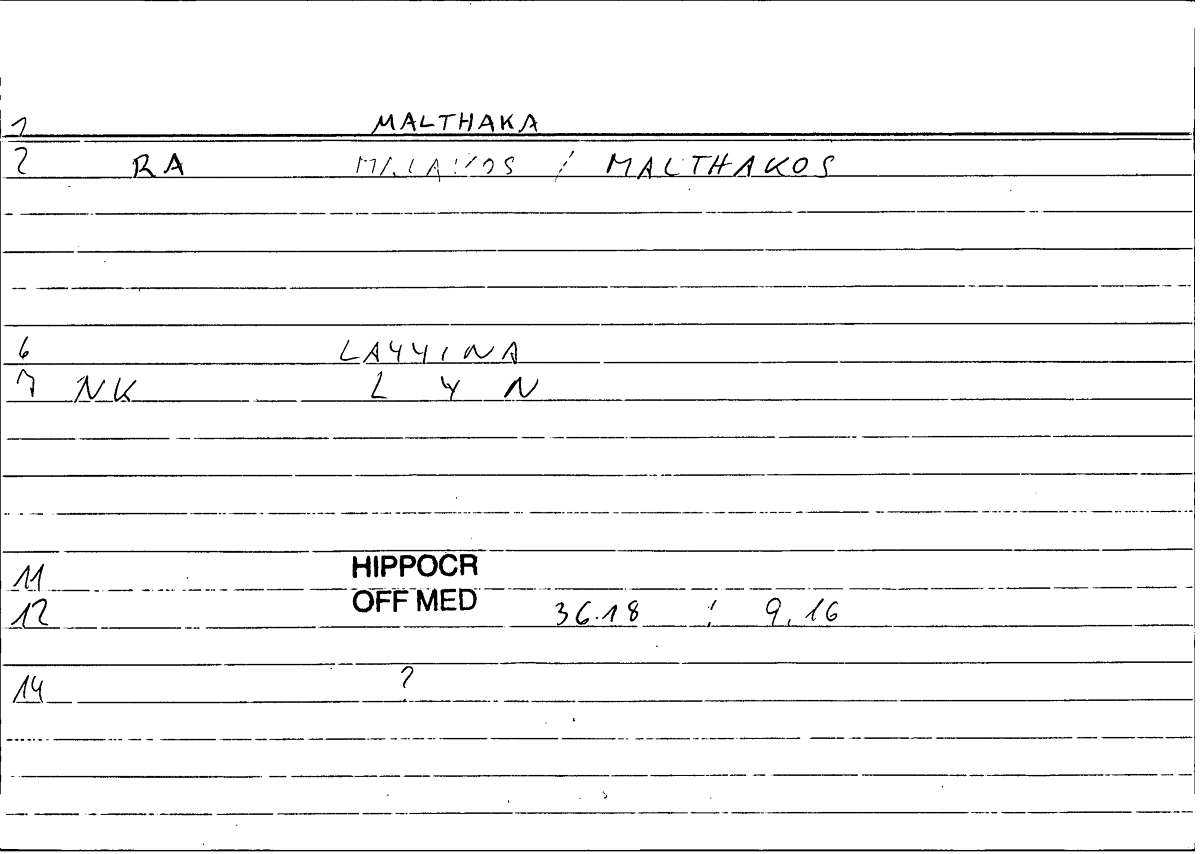 1 MALTHAKA
2 RA MALAKOS / MALTHAKOS
6 LAYYINA
7 NK L Y N
11 HIPPOCR
12 OFF MED 36.18 ; 9,16
14 ?